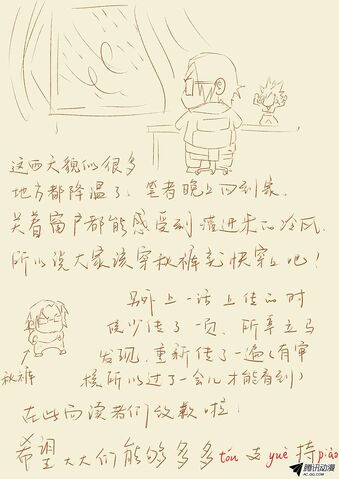 这两天貌似很多
地方都降温了,笔者晚上回到家,
关着窗户都能感受到灌进来的冷风,
所以说大家该穿秋裤克快穿上吧!
另外上一话上传的时
候少传了一页,所幸立马
发现,重新传了一遍(有审
秋裤
核所以过了一会儿才能看到)
在此向读者们致歉啦!
希望大大们能够多多tóu支yuè持piào
腾讯动漫
AC.QQ.COM